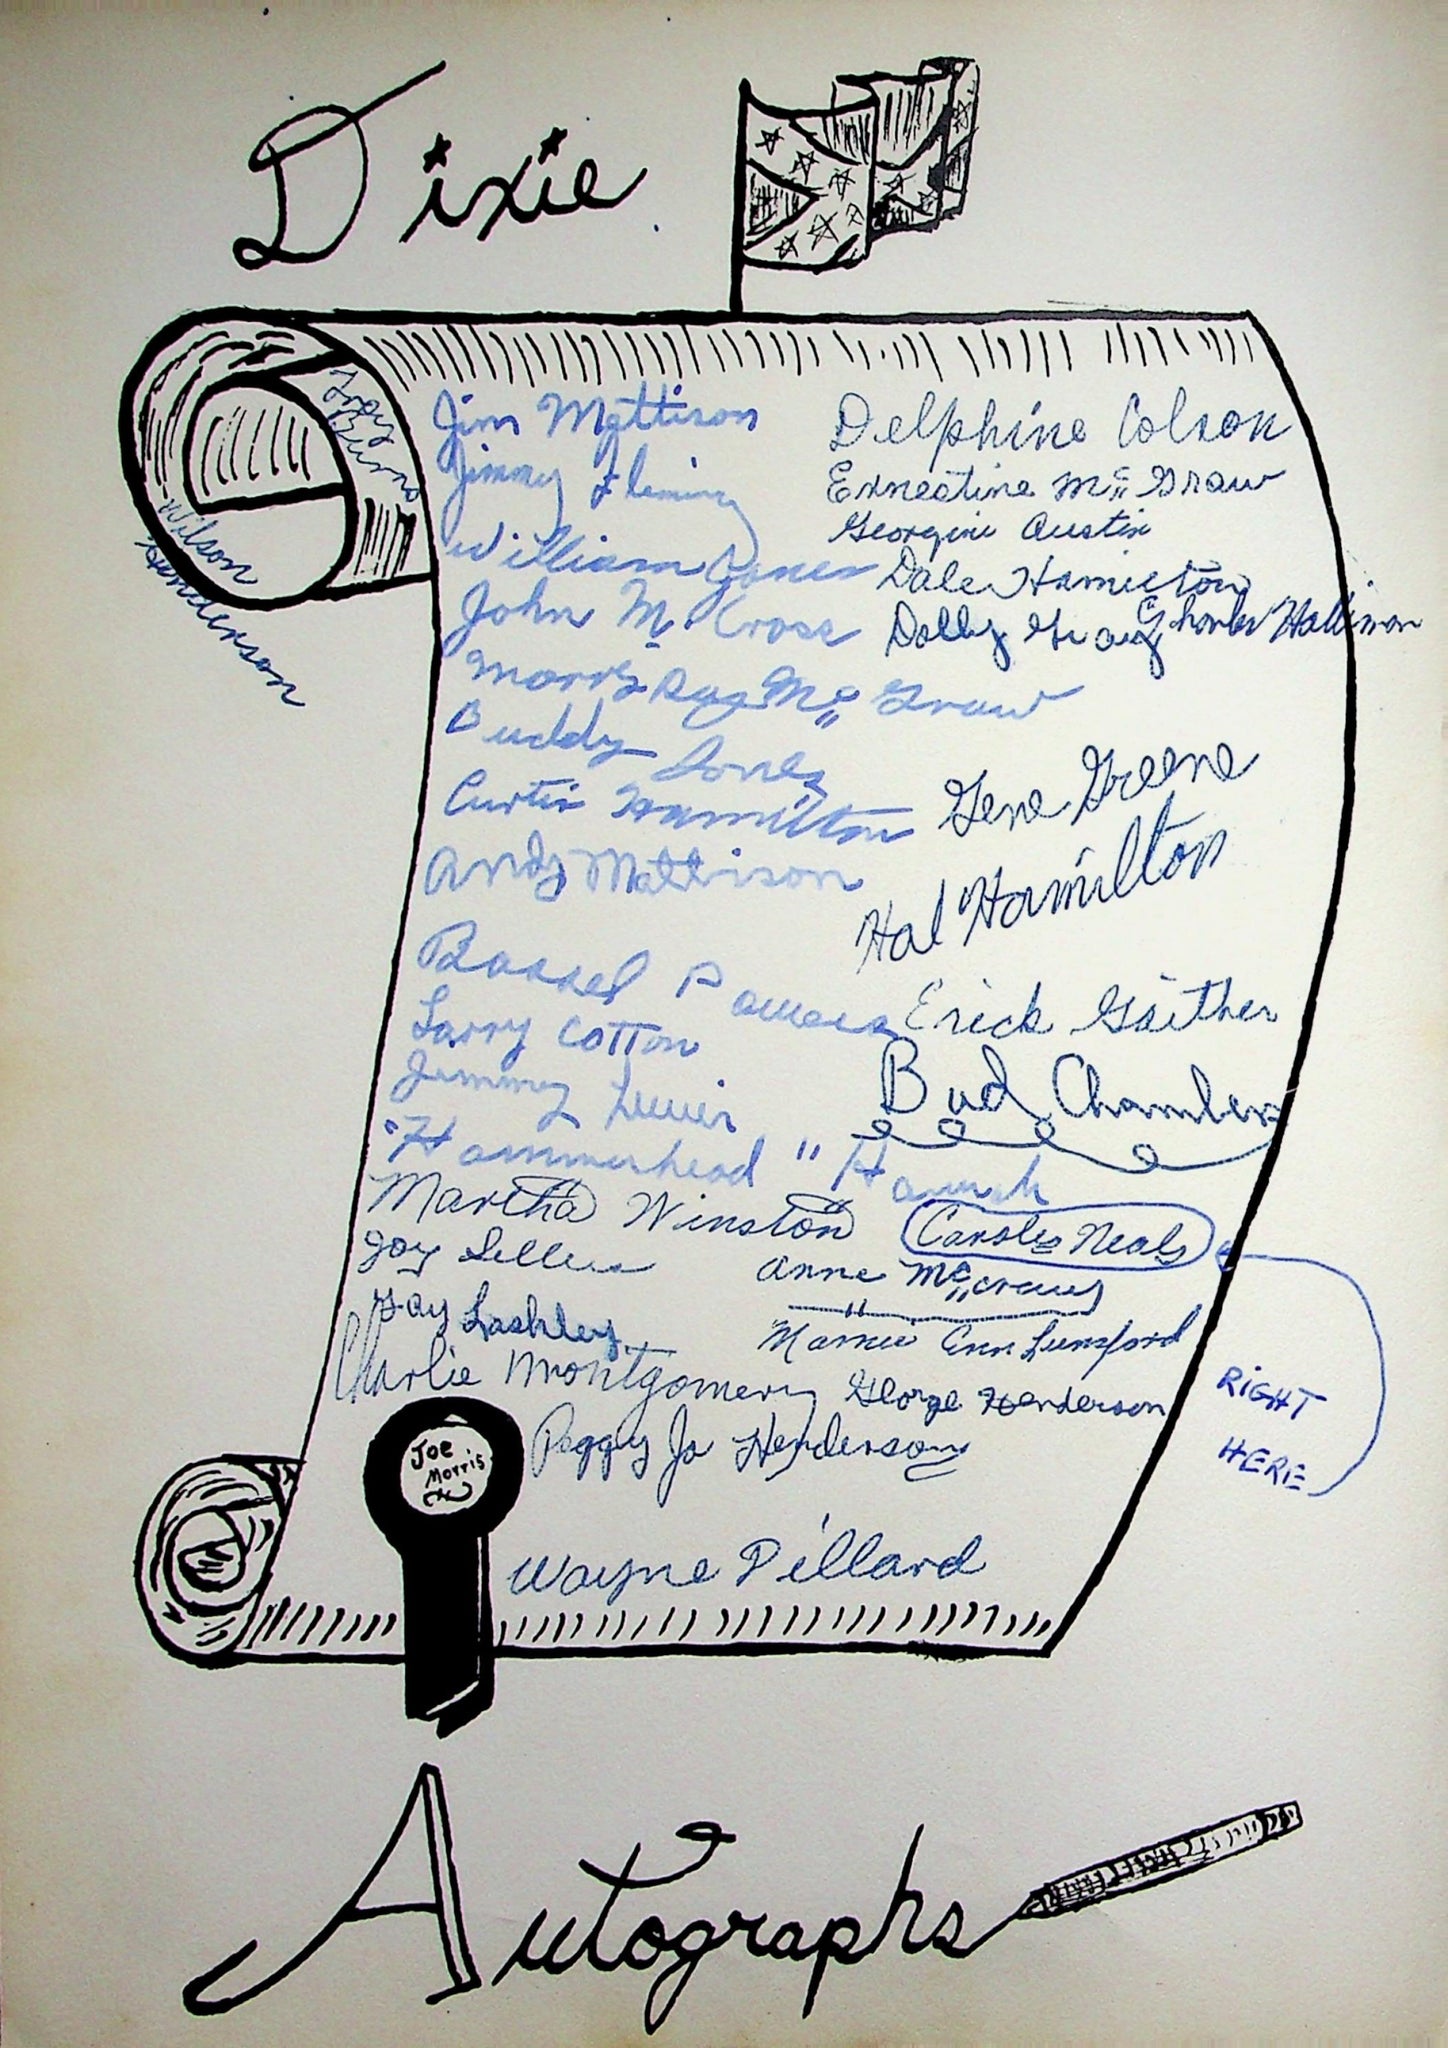 Dixie
Burns
Wilson
Henderson
Jim Mattison
Jimmy Fleming
William Jones
John M. Cross
Morris Ray McGraw
Buddy Jones
Curtis Hamilton
Andy Mattison
Larry Cotton
Jimmy
"Hammerhead" Hannah
Martha Winston
Joy Sellers
Gay Lashley
Charlie Montgomery
Peggy Jo Henderson
Joe
Morris
Wayne Dillard
Delphine Colson
Ernestine McGraw
Georgine Austin
Dale Hamilton
Dolly Gray
Gene Greene
Hal Hamilton
Erick Gaither
Bud Chambers
Neals
Anne
Ann Lunsford
George Henderson
RIGHT
HERE
Autographs